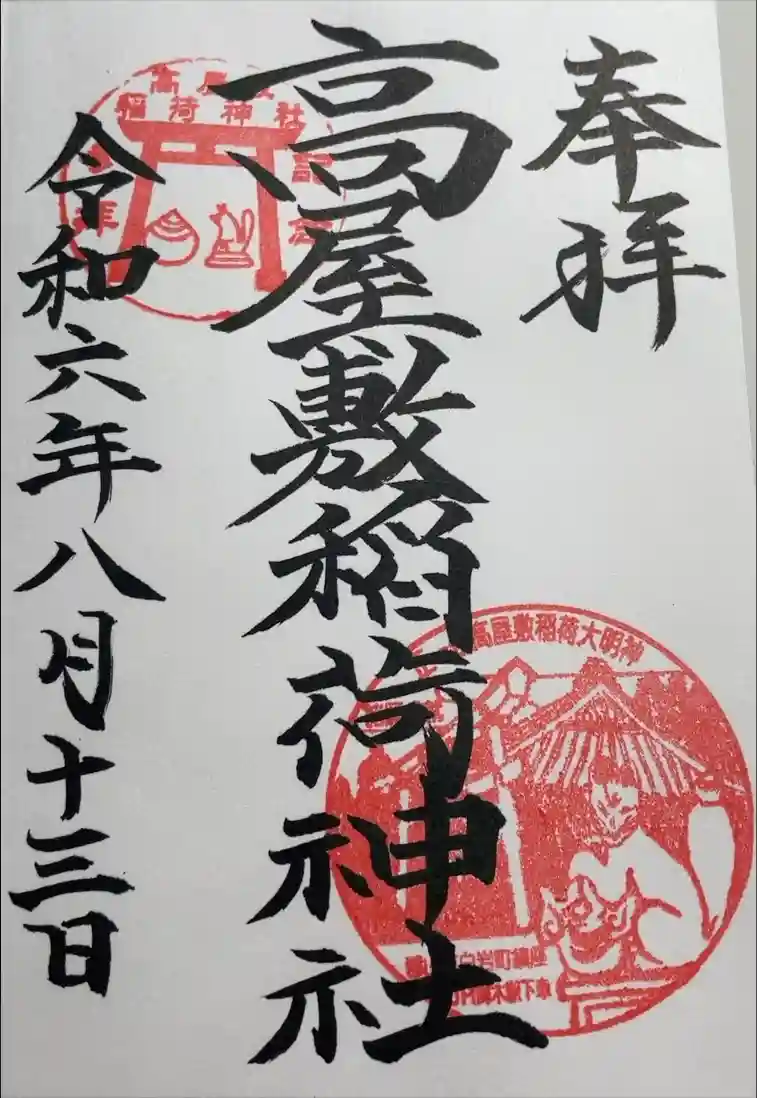 奉拝
高屋敷稲荷神社
令和六年八月十三日
稲荷神社
高屋敷稲荷大明神
白岩町鎮座
下車